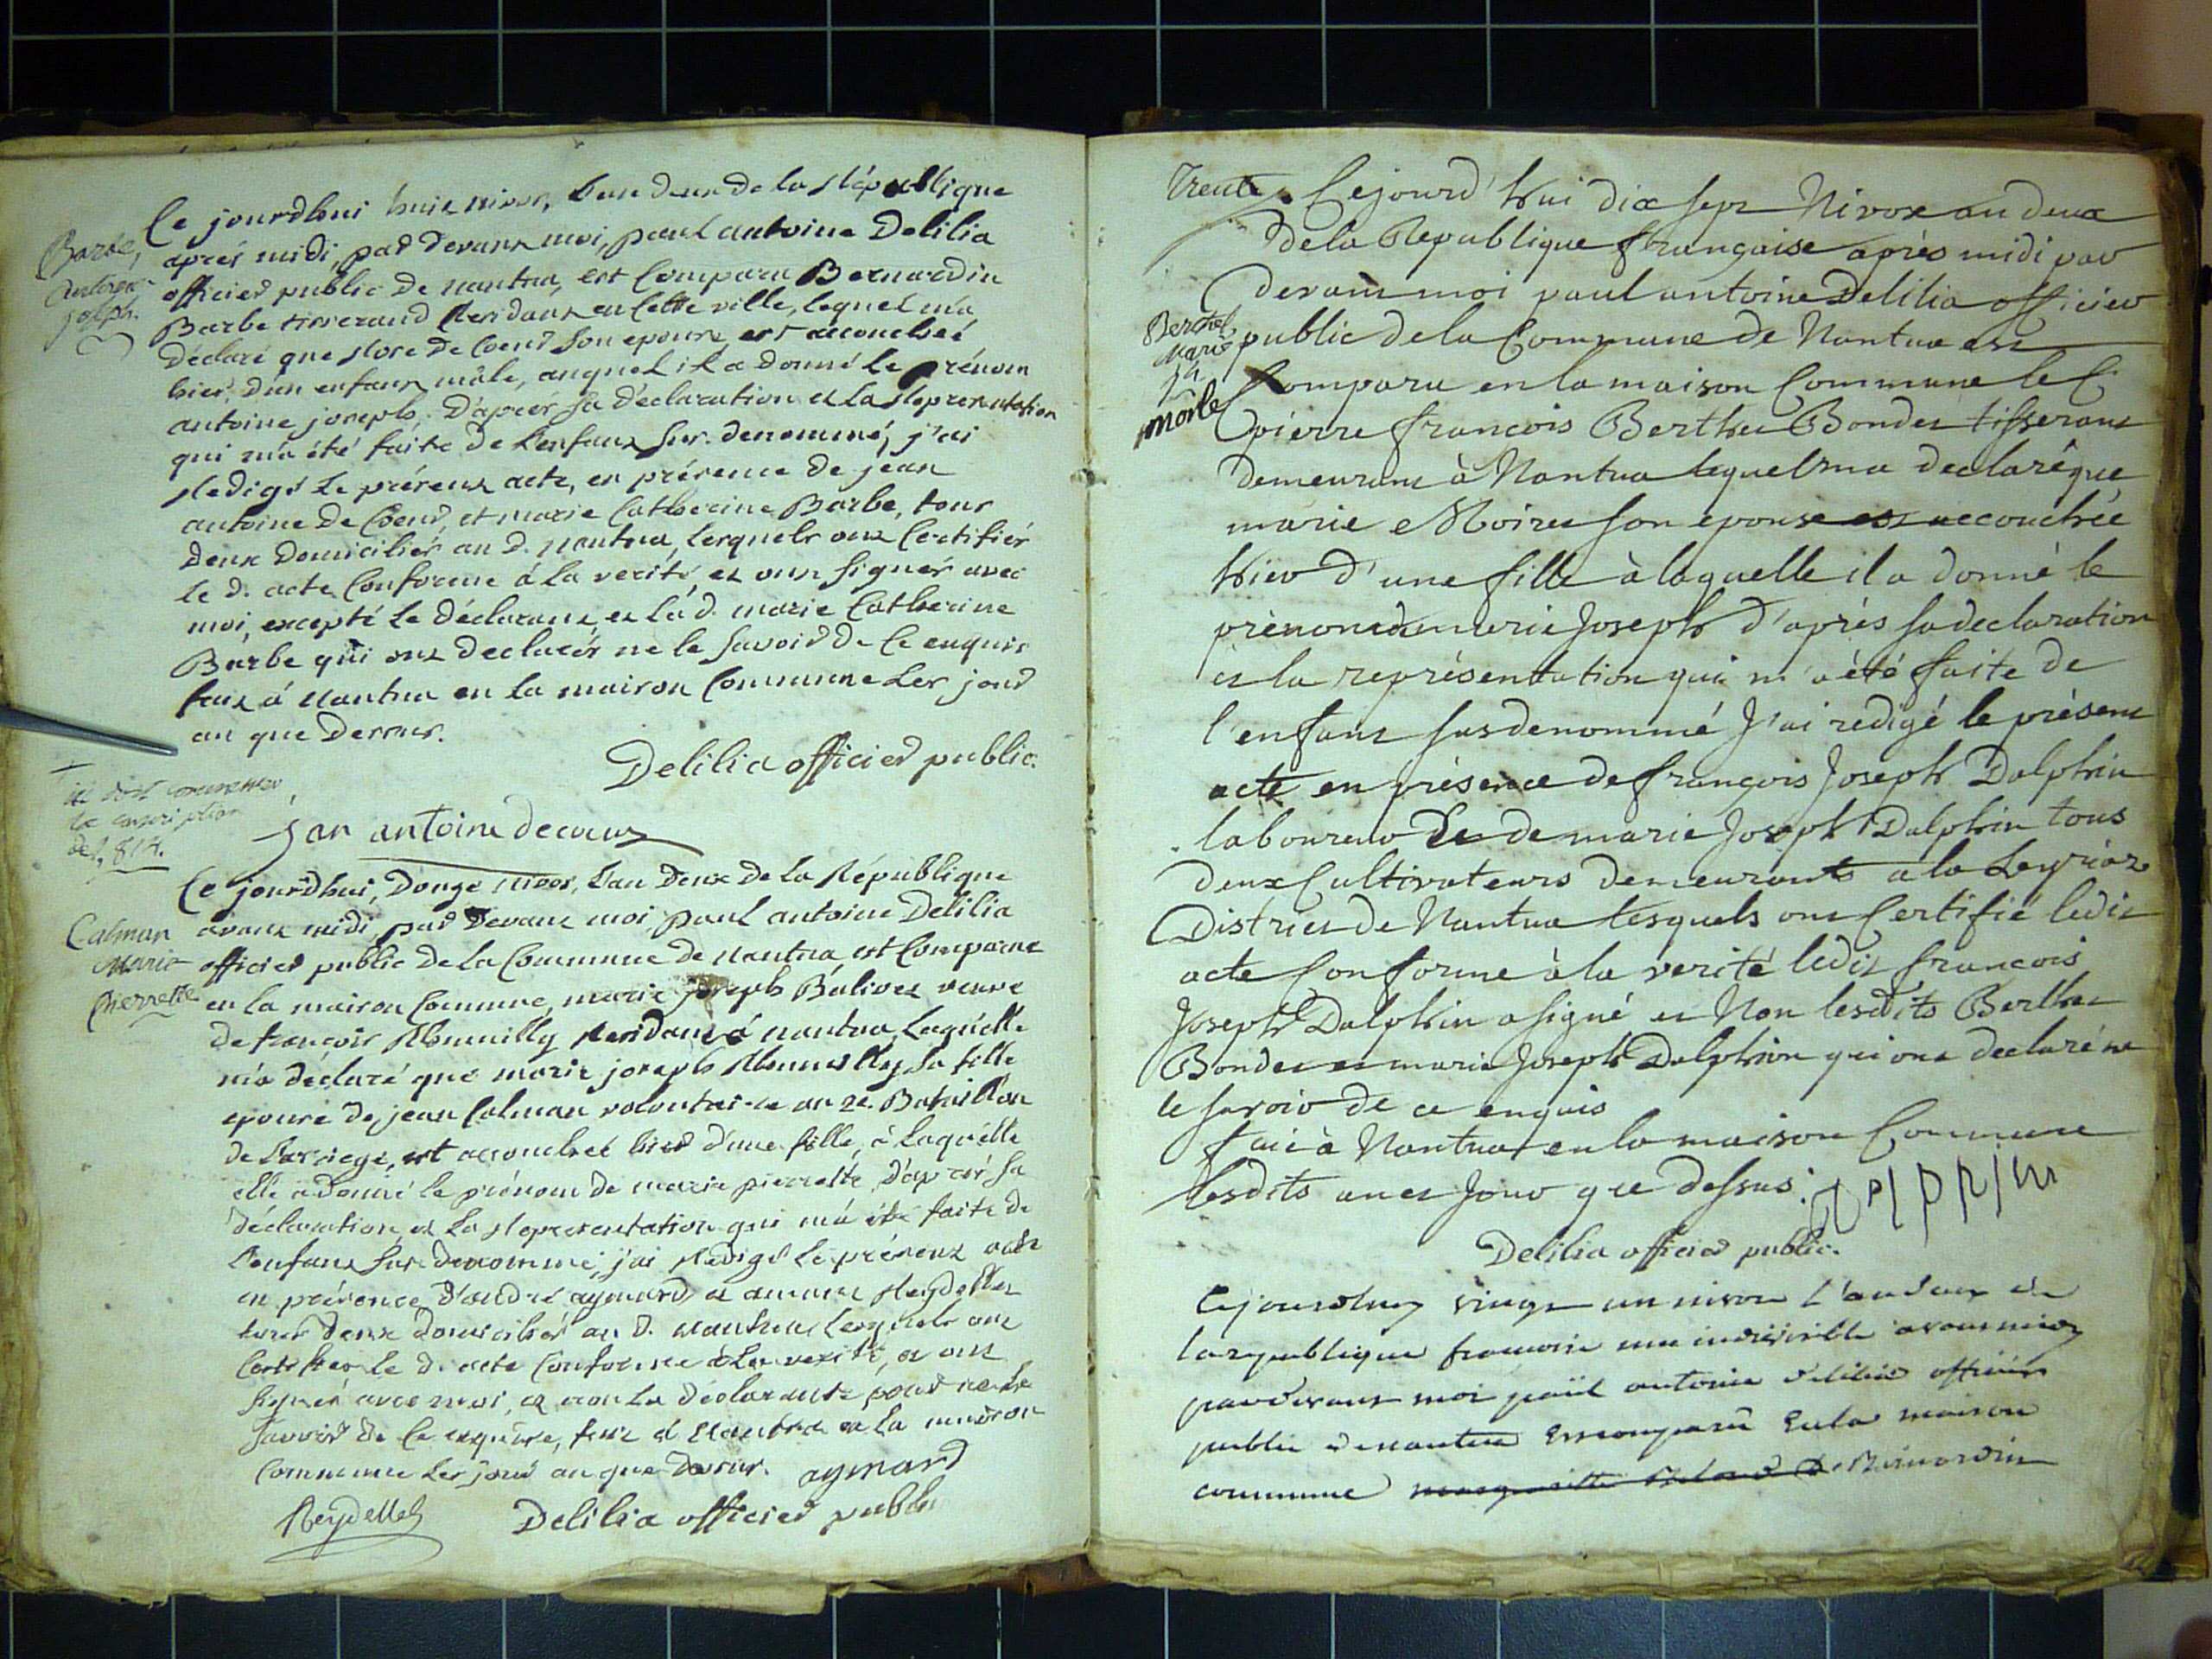 Ce jourdhui huit nivos, l'an deux de la République
Barbe,
antoine
joseph.
après midi, par devant moi, paul antoine Delilia
officier public de nantua, est Comparu Bernardin
Barbe tisserand Residant en Cette ville, lequel m'a
déclaré que Rose de Coeur son epouse, est accouchée
hier, d'un enfant mâle, auquel il a donné le prénom
antoine joseph. D'après sa déclaration et la Représentation
qui m'a été faite de l'enfant sus-denommé, j'ai
Redigé le présent acte, en présence de jean
antoine de Coeur, et marie Catherine Barbe, tous
deux domiciliés au d. nantua, lesquels ont Certifiés
le d. acte Conforme à la verité, et ont signés avec
moi, excepté le déclarant, et la d. marie Catherine
Barbe qui ont declarés ne le savoir de ce enquis
fait à nantua en la maison Commune les jour
an que dessus.
Delilia officier public.
ici doit commencer
la conscription
de 1814.
jan antoine decoeur
Ce jourdhui, douze nivos, l'an deux de la République
Calman
Marie
Pierrette
avant midi, par devant moi paul antoine Delilia
officier public de la Commune de nantua, est Comparue
en la maison Commune, marie joseph Balivet veuve
de françois Residant à nantua, laquelle
m'a déclaré que marie joseph sa fille
epouse de jean Calman volontaire au 2e. Bataillon
de l'arriege, est accouchée hier d'une fille, à laquelle
elle a donné le prénom de marie pierrette, d'après sa
déclaration, et la Représentation qui m'a été faite de
l'enfant sus-denommé, j'ai Redigé le présent acte
en présence d'andré aymard, et Reydellet
tous deux domiciliés au d. nantua, lesquels ont
Certifiés le d. acte Conforme à la verité, et ont
signés avec moi, et non la déclarante pour ne le
savoir de ce enquise, fait à Nantua en la maison
Commune les jour an que dessus. aymard
Reydellet Delilia officier public
Trente Cejourd'hui dix sept Nivose an deux
de la Republique française après midi par
devant moi paul antoine Delilia officier
Berthet
Marie
Jh
public de la Commune de Nantua est
Comparu en la maison Commune le C.
morte
pierre francois Berthet Bondet tisserant
demeurant à Nantua lequel m'a declaré que
marie Moiret son epouse est accouchée
hier d'une fille à laquelle il a donné le
prénom de marie Joseph d'après sa declaration
et la représentation qui m'a été faite de
l'enfant susdenommé J'ai redigé le présent
acte en présence de françois Joseph Dalphin
laboureur et de marie Joseph Dalphin tous
deux Cultivateurs demeurants a la Leyriaz
District de Nantua lesquels ont Certifié ledit
acte Conforme à la verité ledit francois
Joseph Dalphin a signé et Non lesdits Berthet
Bondet et marie Joseph Dalphin qui ont declaré ne
le savoir de ce enquis
fait à Nantua en la maison Commune
lesdits an et Jour que dessus.
Delilia officier public.
Cejourdhuy vingt un nivose l'an deux de
la republique francoise une indivisible avant midy
pardevant moi paul antoine delilia officier
public de nantua Est comparu En la maison
commune Bernardin